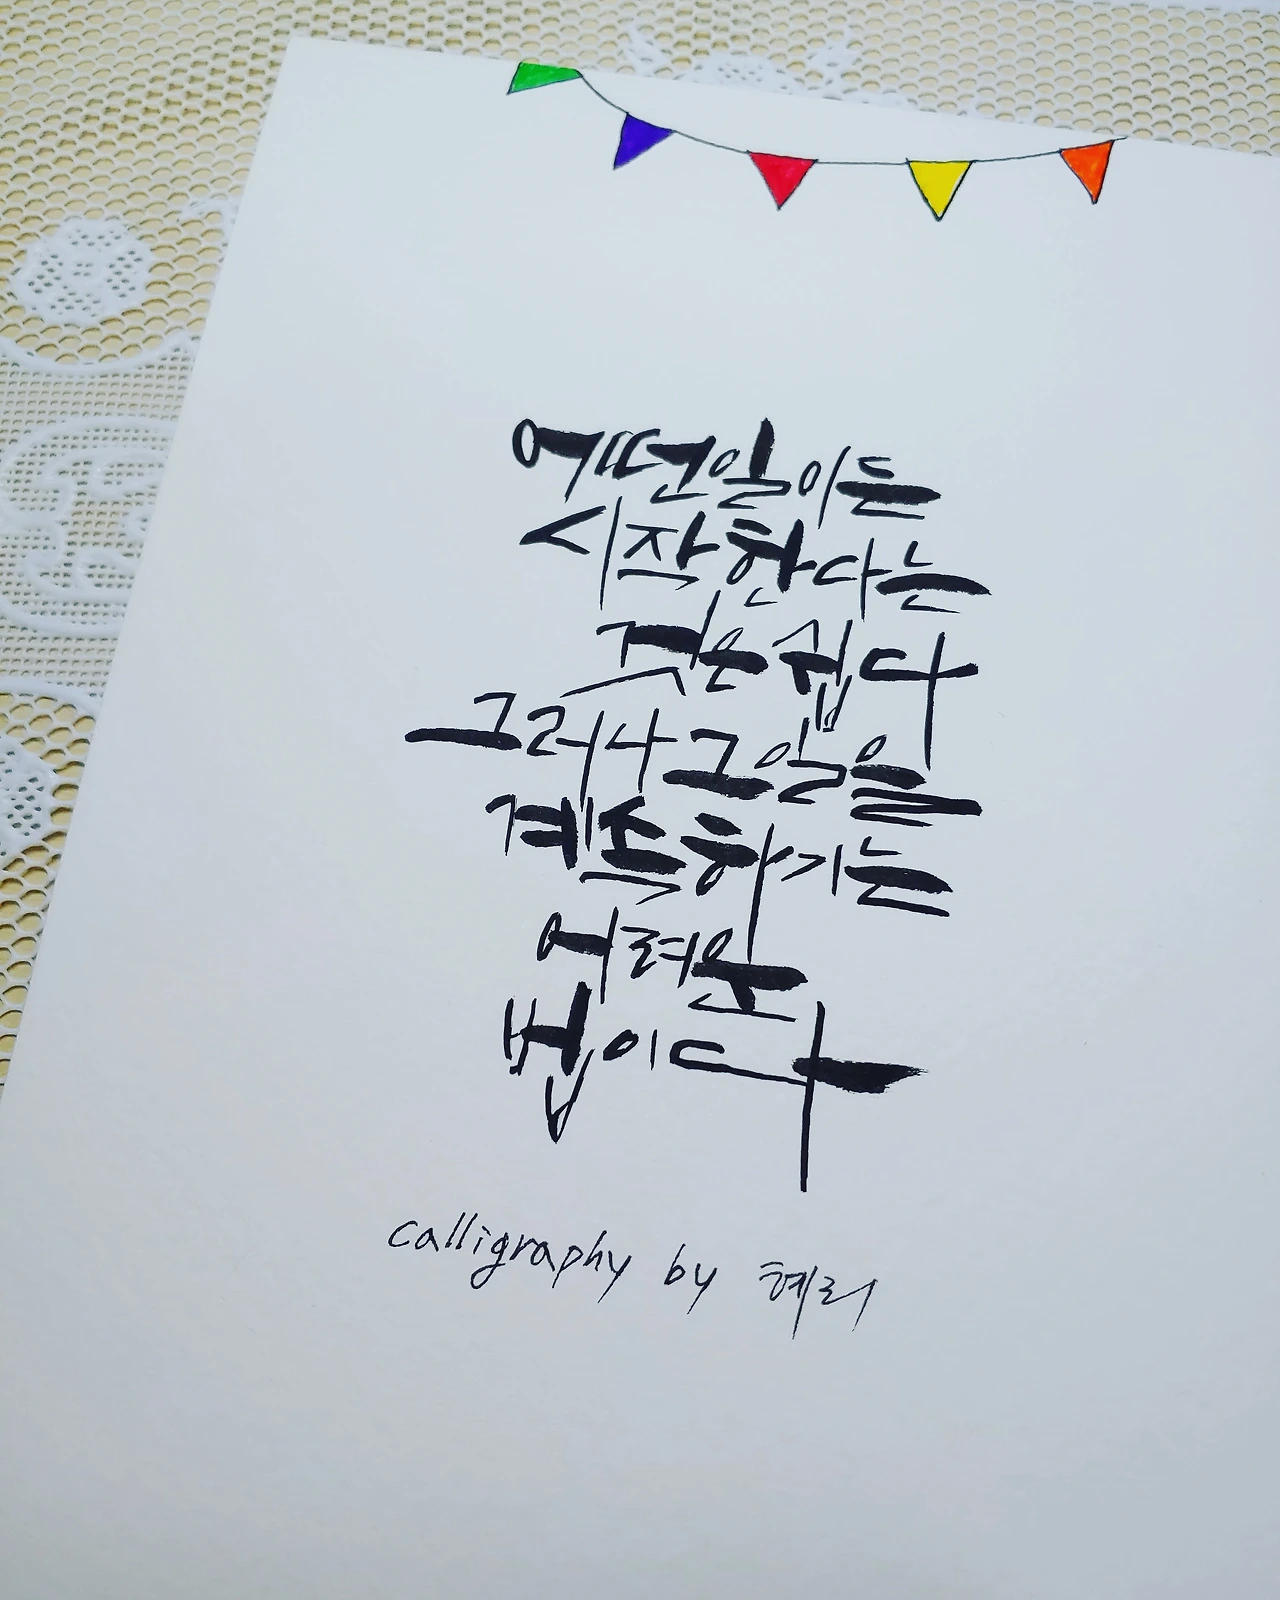 어떤일이든
시작한다는
것은쉽다
그러나그일을
계속하기는
어려운
법이다
calligraphy by 혜리